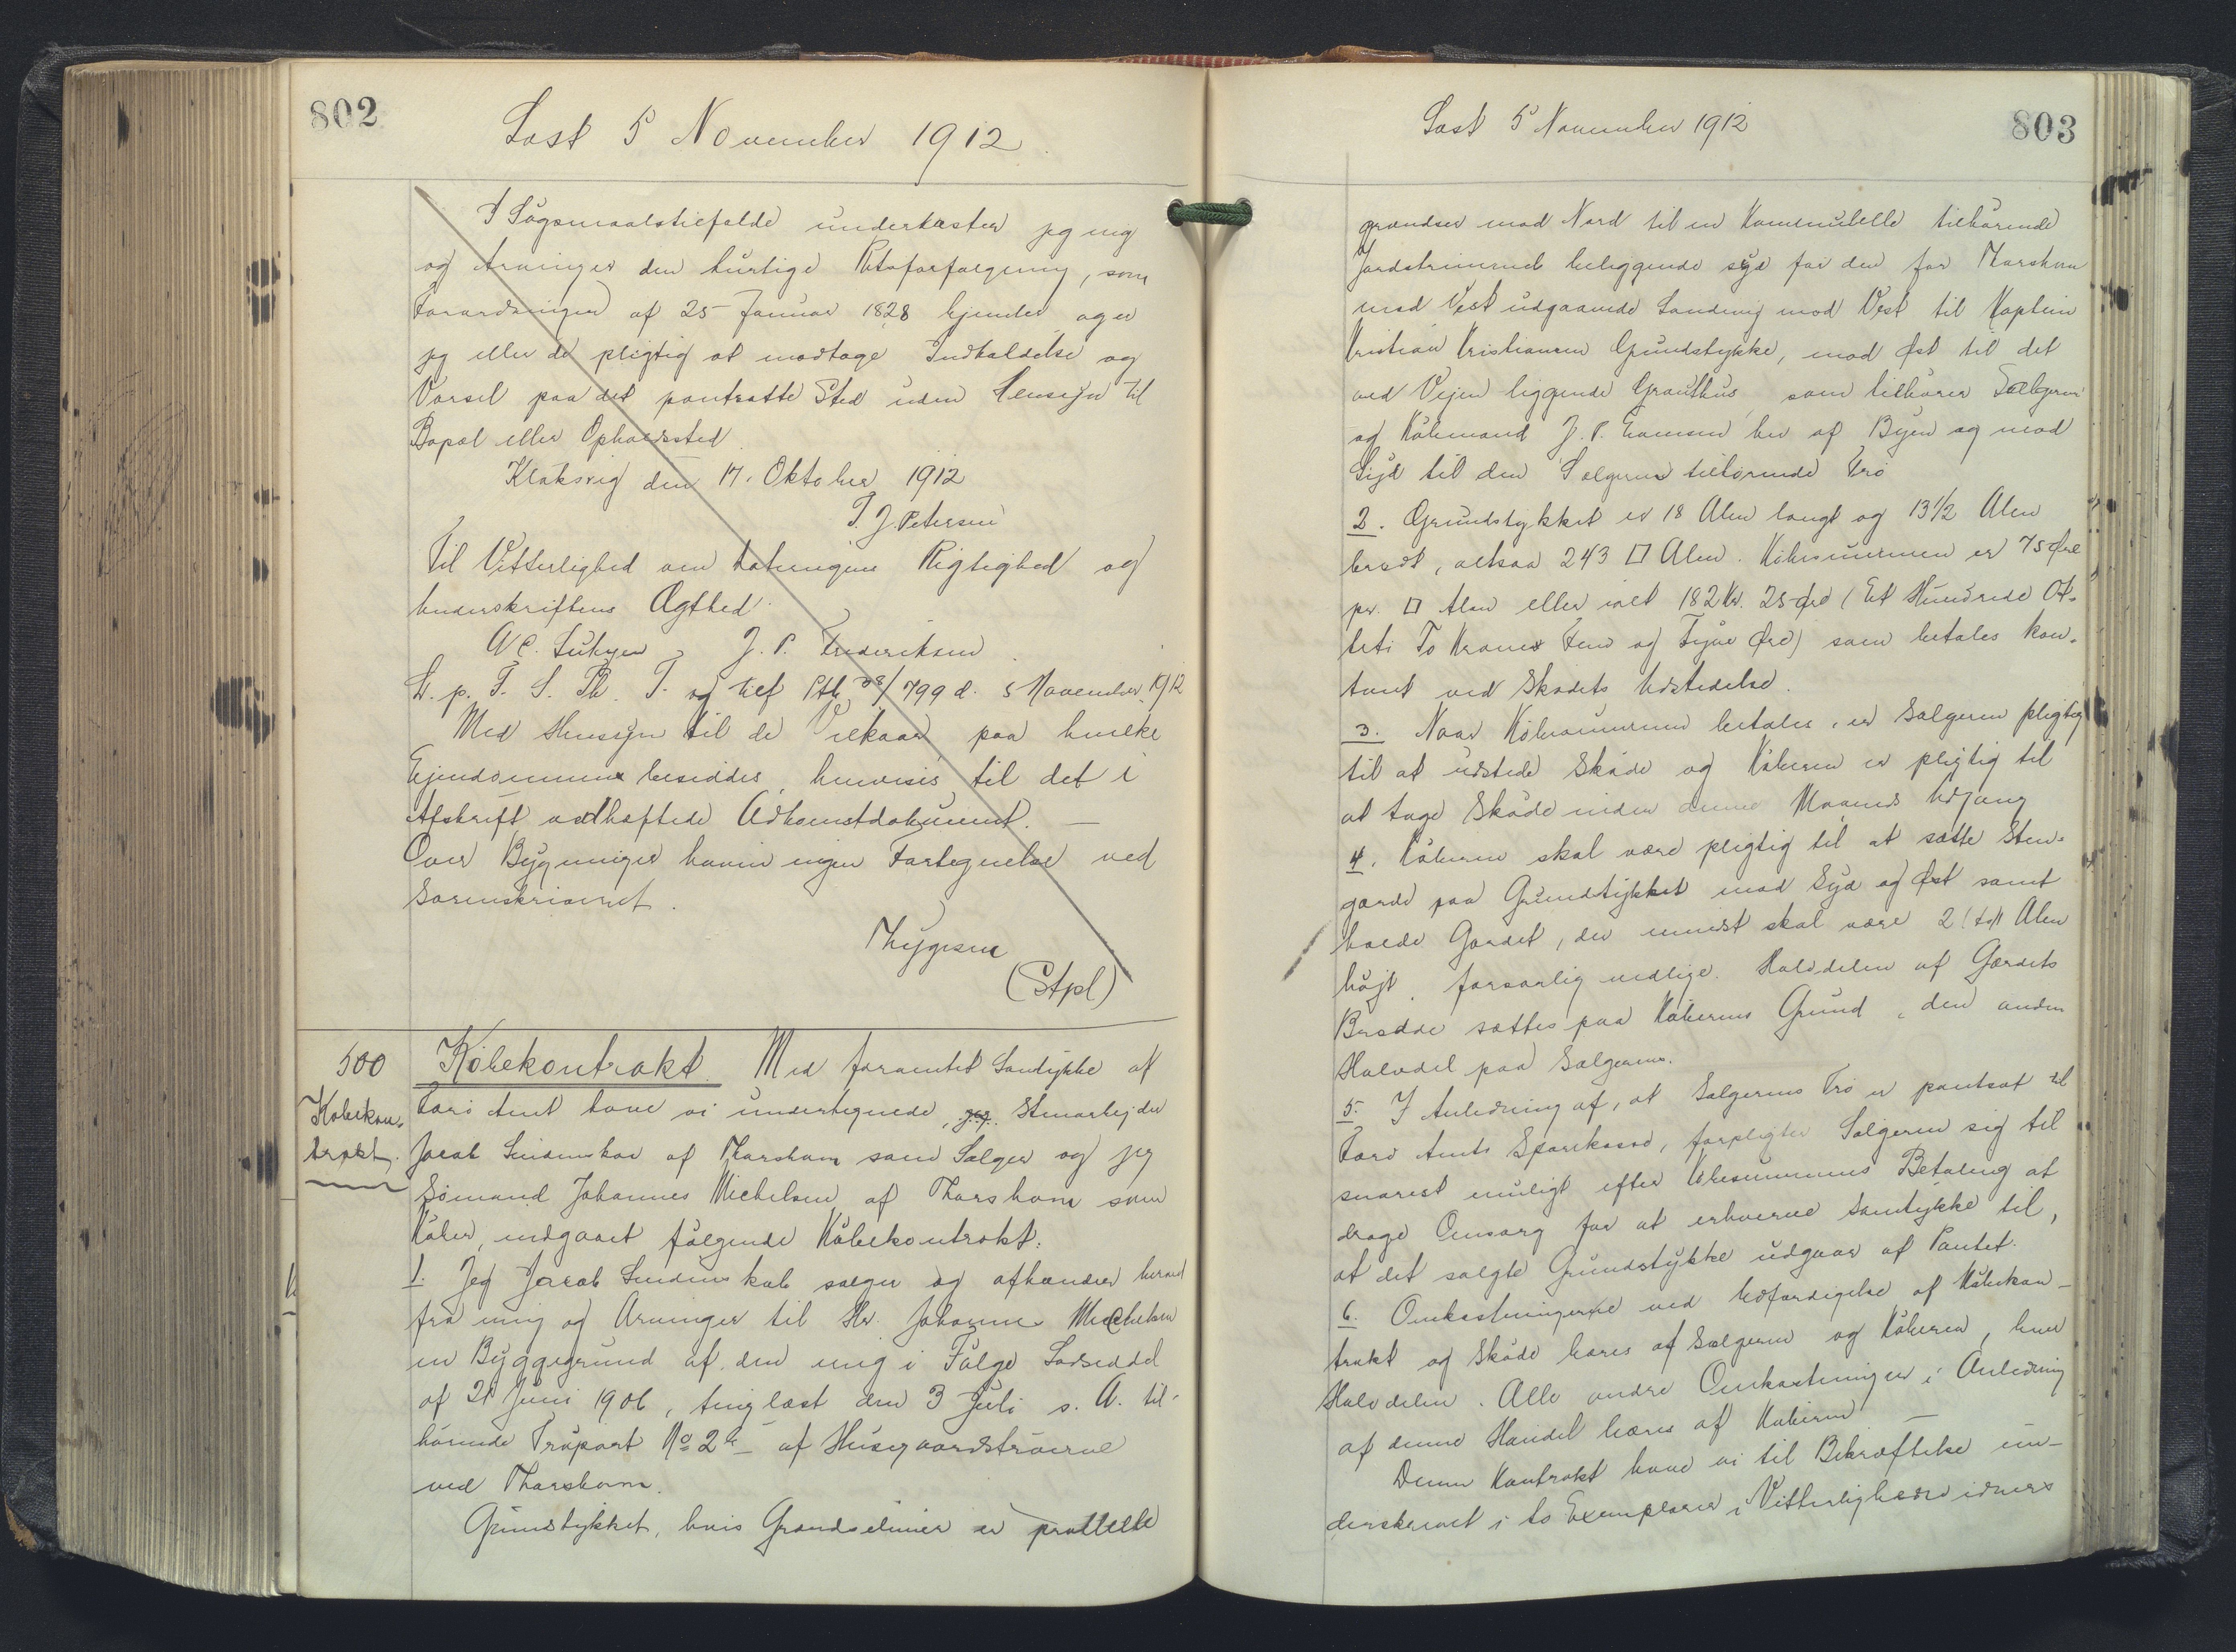 802
Læst 5 November 1912
I Søgsmaalstilfælde underkaster jeg mig
og Arvinger den hurtige Retsforfølgning, som
Forordningen af 25 Januar 1828 hjemler og er
jeg eller de pligtig at modtage Indkaldelse og
Varsel paa det pantsatte Sted uden Hensyn til
Bopæl eller Opholdssted
Klaksvig den 17. Oktober 1912
J. Petersen
Til Vitterlighed om Dateringens Rigtighed og
Underskriftens Ægthed:
J. P. Frederiksen
L. p. F. S. Th. T. og tilf Ptb 28/799 d. 5 November 1912
Med Hensyn til de Vilkaar, paa hvilke
Ejendommene besiddes, henvises til det i
Afskrift vedhæftede Adkomstdokument. —
Over Bygninger haves ingen Fortegnelse ved
Sorenskriveriet.
Thygesen
(Stpl)
500
Købekon-
trakt.
Købekontrakt. Med forventet Samtykke af
Færø Amt have vi undertegnede, jeg Stenarbejder
Jacob Lindenskov af Thorshavn som Sælger og jeg
Sømand Johannes Michelsen af Thorshavn som
Køber, indgaaet følgende Købekontrakt:
1. Jeg Jacob Lindenskov sælger og afhænder herved
fra mig og Arvinger til Hr. Johannes Michelsen
en Byggegrund af den mig i Følge Lodseddel
af 21 Juni 1906, tinglæst den 3 Juli s. A. til-
hørende Trøpart No 2 af Husegaardstrøerne
ved Thorshavn.
Grundstykket, hvis Grændselinier er paralelle
803
Læst 5 November 1912
grændser mod Nord til en Kommunale tilhørende
Jordstrimmel beliggende syd for den fra Thorshavn
mod Vest udgaaende Landevej mod Vest til Kaptein
Kristian Kristiansen Grundstykke, mod Øst til det
ved Vejen liggende Grønthus, som tilhører Sælgeren
og Købmand J. P. her af Byen og mod
Syd til den Sælgeren tilhørende Trø
2. Grundstykket er 18 Alen langt og 13 1/2 Alen
bredt, altsaa 243 □ Alen. Købesummen er 75 Øre
pr. □ Alen eller ialt 182 Kr. 25 Øre (Et Hundrede Ot-
teti To Kroner Fem og Tyve Øre) som betales kon-
tant ved Skødets Udstedelse.
3. Naar Købesummen betales, er Sælgeren pligtig
til at udstede Skøde og Køberen er pligtig til
at tage Skøde inden denne Maaneds Udgang
4. Køberen skal være pligtig til at sætte Sten-
gærde paa Grundtykket mod Syd og Øst samt
holde Gærdet, der mindst skal være 2 (to) Alen
højt, forsvarlig vedlige. Halvdelen af Gærdets
Bredde sættes paa Køberens Grund, den anden
Halvdel paa Sælgerens.
5. I Anledning af, at Sælgerens Trø er pantsat til
Færø Amts Sparekasse, forpligter Sælgeren sig til
snarest muligt efter Købesummens Betaling at
drage Omsorg for at erhverve Samtykke til,
at det solgte Grundstykke udgaar af Pantet.
6. Omkostningerne ved Udfærdigelse af Købekon-
trakt og Skøde bæres af Sælgeren og Køberen, hver
Halvdelen. Alle andre Omkostninger i Anledning
af denne Handel bæres af Køberen —
Denne Kontrakt have vi til Bekræftelse un-
derskrevet i to Exemplarer i Vitterlighedsvidners